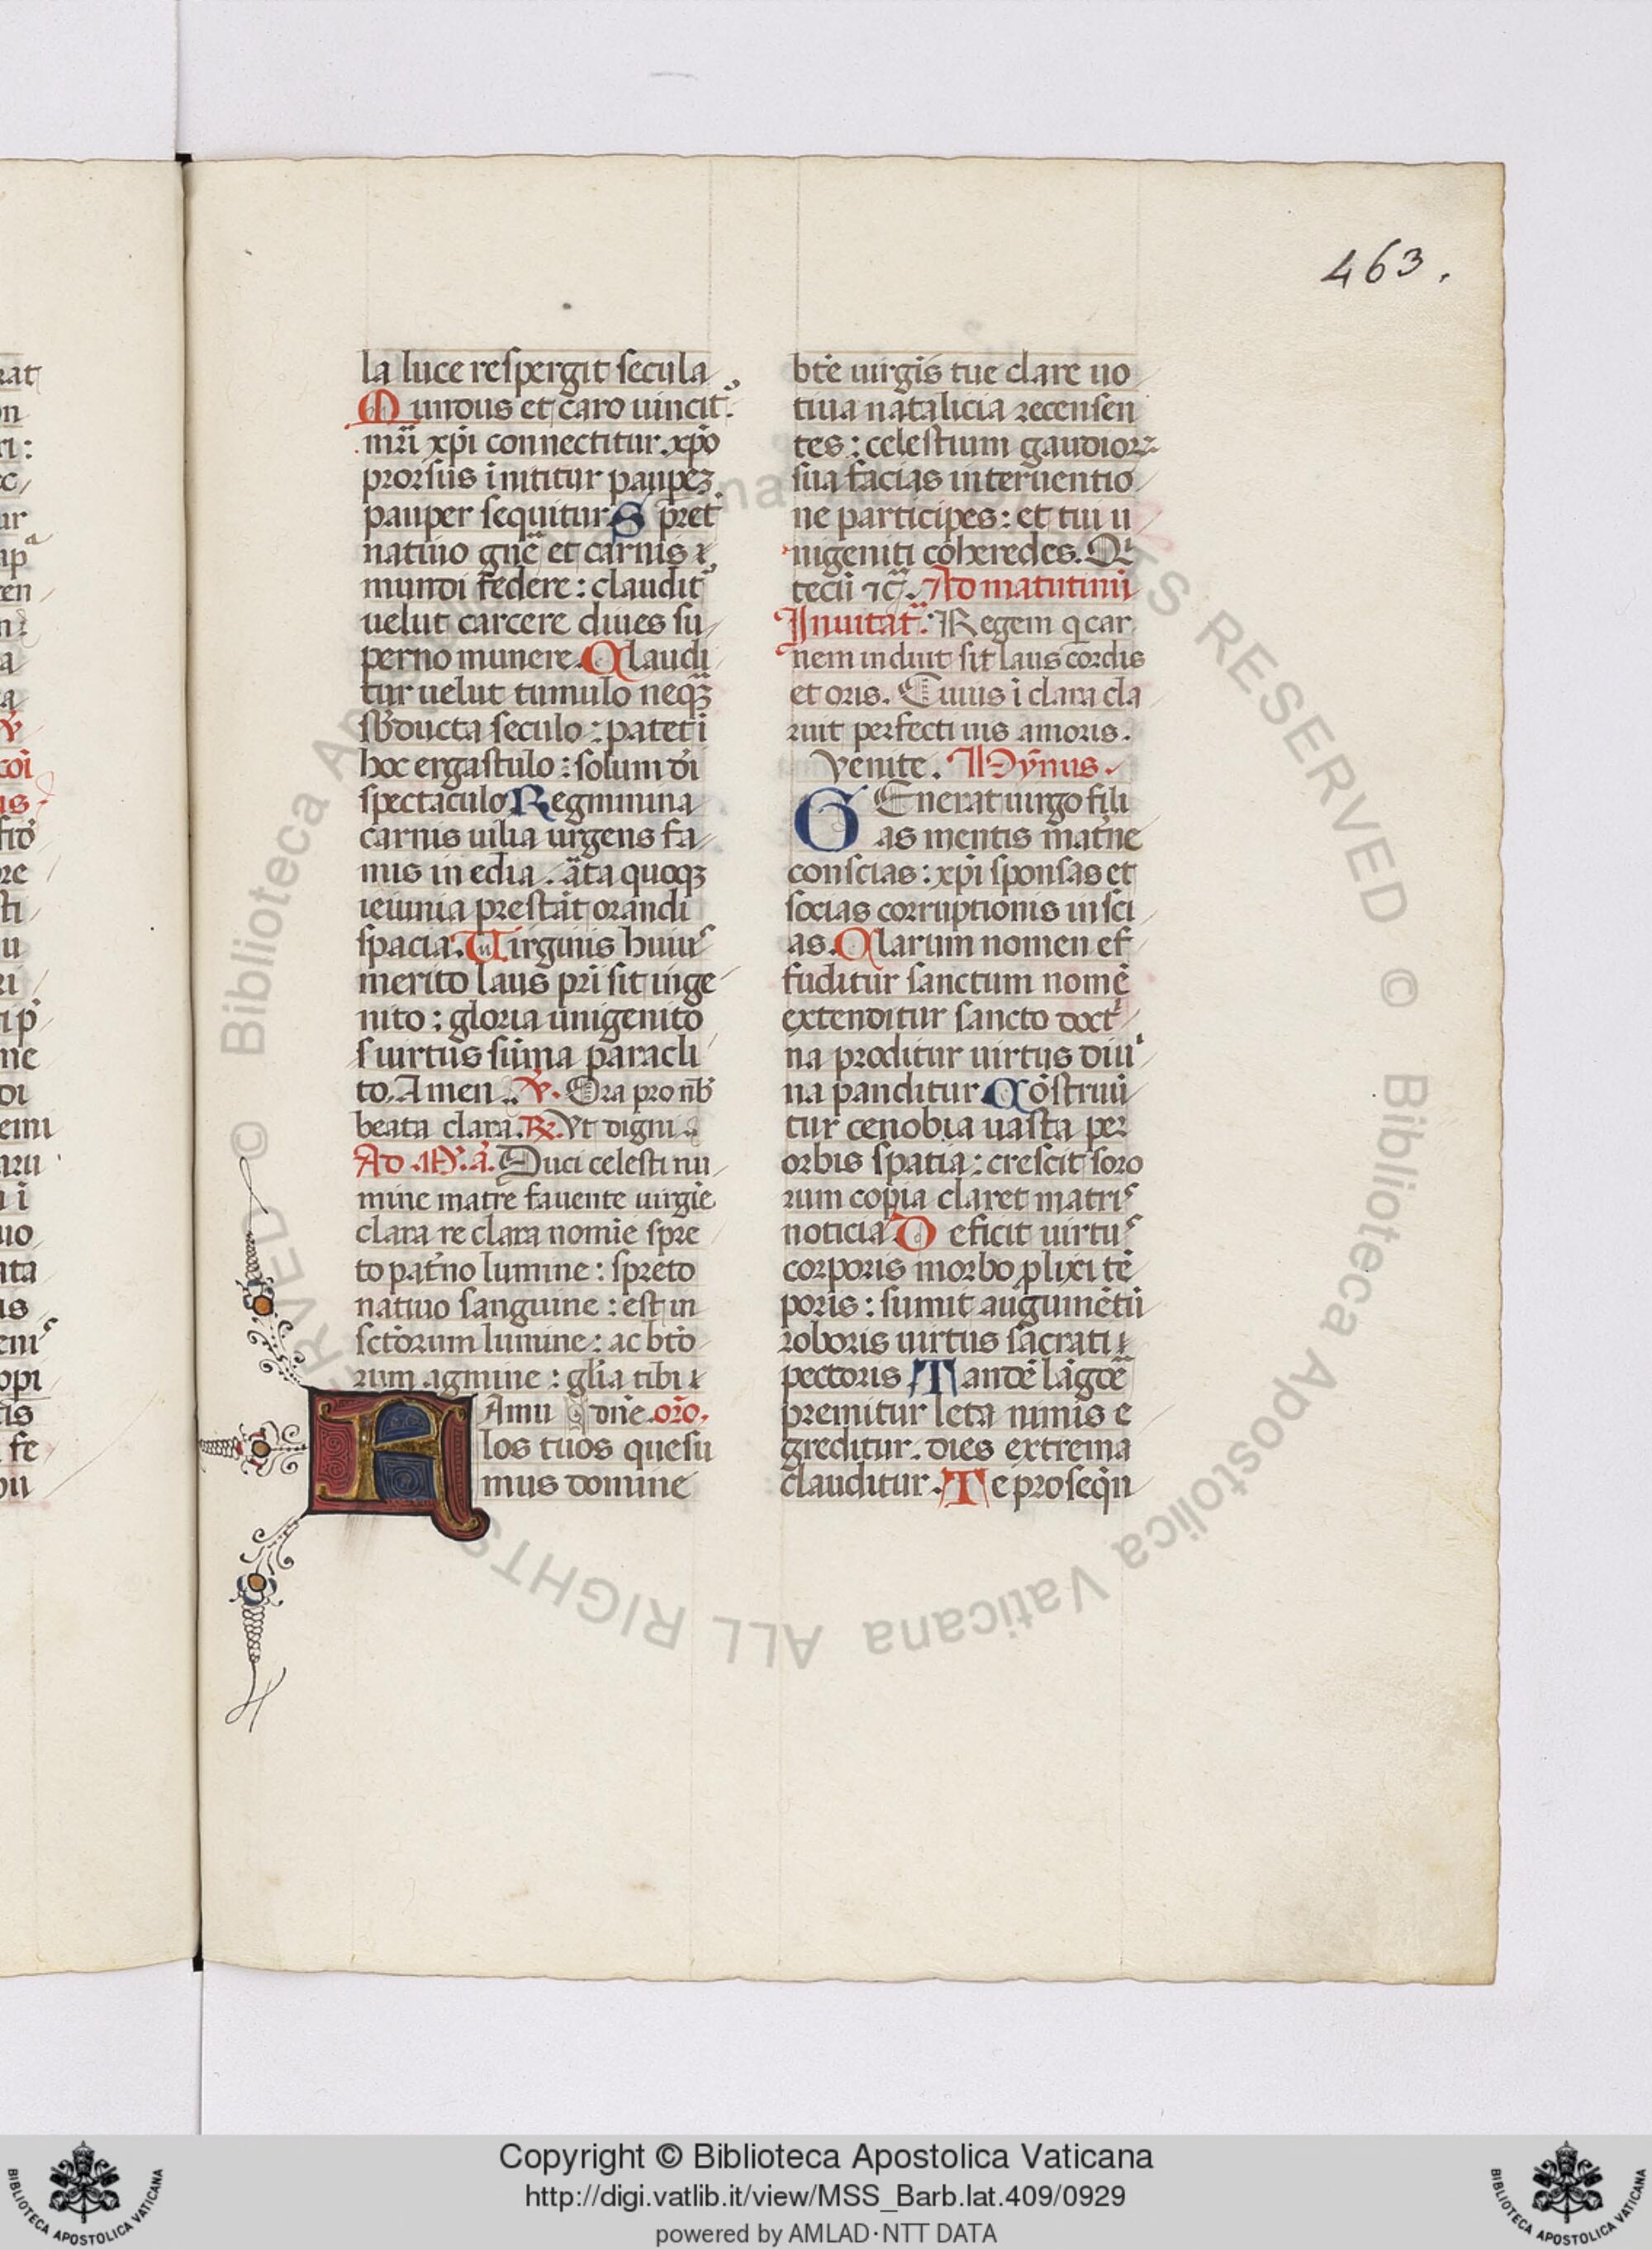 463.
la luce respergit secula
Mundus et caro uincitᷣ.
mr̄i xp̄i connectitur. xp̄o
prorsus īnititur paupeꝫ
pauper sequitur Spretᷣ
natiuo gn̄e et carnis ⁊
mundi federe : claudit᷒
uelut carcere diues su
perno munere. Claudi
tur uelut tumulo neqꝫ
sb̄ducta seculo : patet ī
hoc ergastulo : solum dī
spectaculo Regminina
carnis uilia urgens fa
mis in edia. ār̄ta quoqꝫ
ieiunia prestāt orandi
spacia. Uirginis huiuˢ
merito laus pr̄i sit inge
nito : gloria unigenito
s uirtus sūma paracli
to. Amen. ℣. Ora pro nb̄
beata clara. ℟. Vt digni
Ad .M. a. Duci celesti nu
mine matre fauente uirgīe
clara re clara nomīe spre
to pat̄no lumine : spreto
natiuo sanguine : est in
sctōrum lumine : ac btō
rum agmine : glīa tibi
Amu dn̄e. orō.
los tuos quesu
mus domine
btē uirgīs tue clare uo
tiua natalicia recensen
tes : celestium gaudioꝝ
sua facias interuentio
ne participes : et tui u
nigeniti coheredes. Qͥ
tecū ⁊c̄. Ad matutinū
Inuitat̄. Regem q car
nem induit sit laus cordis
et oris. Cuius ī clara cla
ruit perfecti uis amoris.
Venite. Hȳnus.
GEnerat uirgo fili
as mentis mat̄ne
conscias : xp̄i sponsas et
socias corruptionis insci
as. Clarum nomen ef
fuditur sanctum nomē
extenditur sancto doctͥ
na proditur uirtus diuͥ
na panditur Cōstruū
tur cenobia uasta per
orbis spatia : crescit soro
rum copia claret matriˢ
noticia Deficit uirtuˢ
corporis morbo ꝓlixi tē
poris : sumit augumētū
roboris uirtus sacrati
pectoris Tandē lāgdē
premitur leta nimis e
greditur. dies extrema
clauditur. Te proseq̄n
Copyright © Biblioteca Apostolica Vaticana
http://digi.vatlib.it/view/MSS_Barb.lat.409/0929
powered by AMLAD·NTT DATA
BIBLIOTECA APOSTOLICA VATICANA
BIBLIOTECA APOSTOLICA VATICANA
© Biblioteca Apostolica Vaticana ALL RIGHTS RESERVED